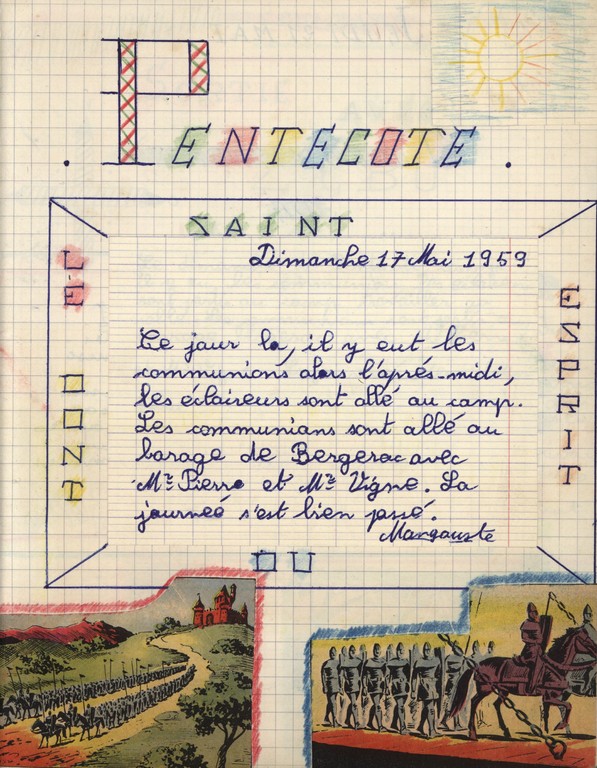 . PENTECOTE .
SAINT
LE
DONT
ESPRIT
DU
Dimanche 17 Mai 1959
Ce jour la, il y eut les
communions alors l'aprés-midi,
les éclaireurs sont allé au camp.
Les communians sont allé au
barage de Bergerac avec
Mr Pierre et Mr Vigne. La
journeé s'est bien passé.